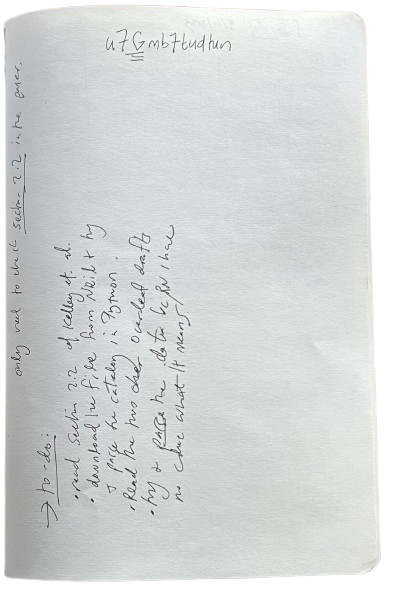 u7Gmb7tudtun
only need to check section 2.2 in the paper.
→ to-do:
• read section 2.2 of Kelley et. al.
• download the file from Neil & try
to parse the catalog in Python.
• Read the two other Overleaf drafts
• try to parse the data bc RN I have
no clue what it means/